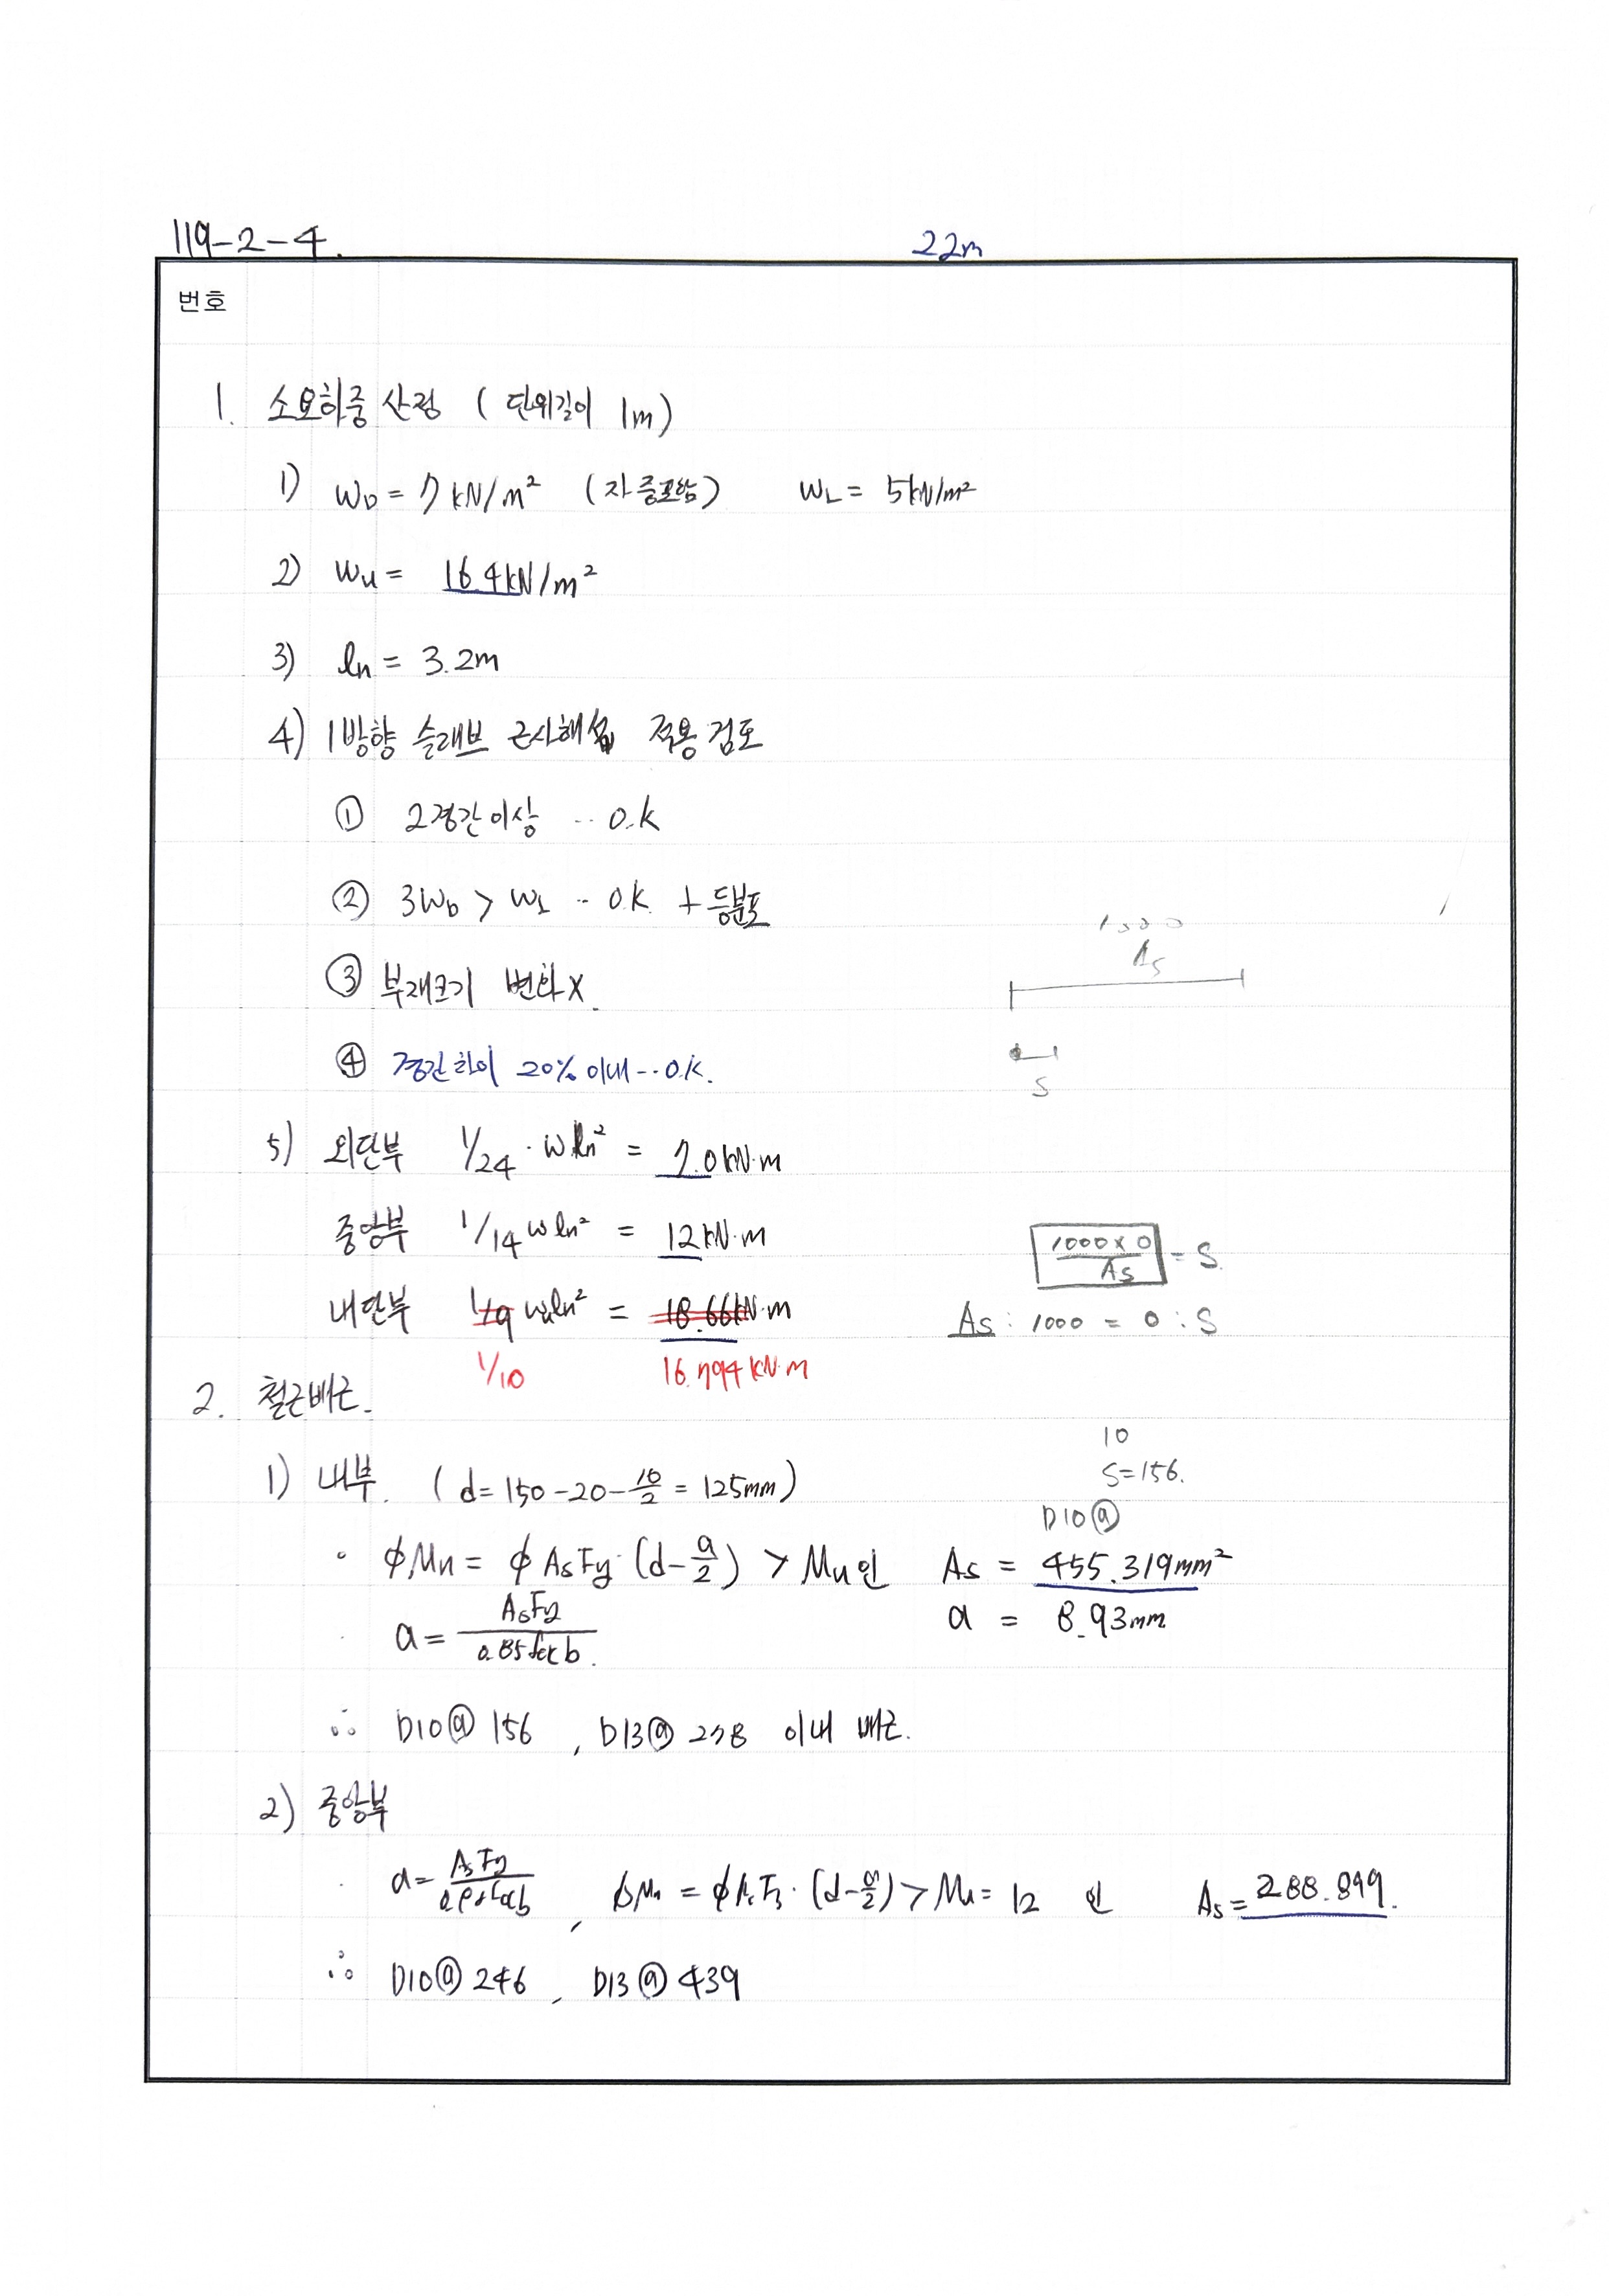 119-2-4.
22m
번호
1. 소요하중 산정 ( 단위길이 1m)
1) WD = 7 kN/m² (자중포함) WL = 5kN/m²
2) Wu = 16.4kN/m²
3) ln = 3.2m
4) 1방향 슬래브 근사해석 적용 검토
① 2경간이상 ·· O.K
② 3WD > WL ·· O.K. + 등분포
1000
As
③ 부재크기 변화X.
④ 경간차이 20% 이내 -·· O.K.
S
5) 외단부 1/24 · Wln² = 7.0kN·m
중앙부 1/14 Wln² = 12kN·m
1000×0/As = S.
내단부 1/9 Wuln² = 18.66kN·m
As : 1000 = 0 : S
1/10 16.794kN·m
2. 철근배근.
10
1) 내부. ( d= 150-20-10/2 = 125mm)
S=156.
D10@
· ϕMn = ϕ AsFy·(d-a/2) > Mu인 As = 455.319mm²
· a = AsFy/0.85fckb. a = 8.93mm
∴ D10@ 156 , D13@ 278 이내 배근.
2) 중앙부
· a= AsFy/0.85fckb , ϕMn = ϕAsFy·(d-a/2) > Mu= 12 인 As= 288.899.
∴ D10@ 246 , D13@ 439